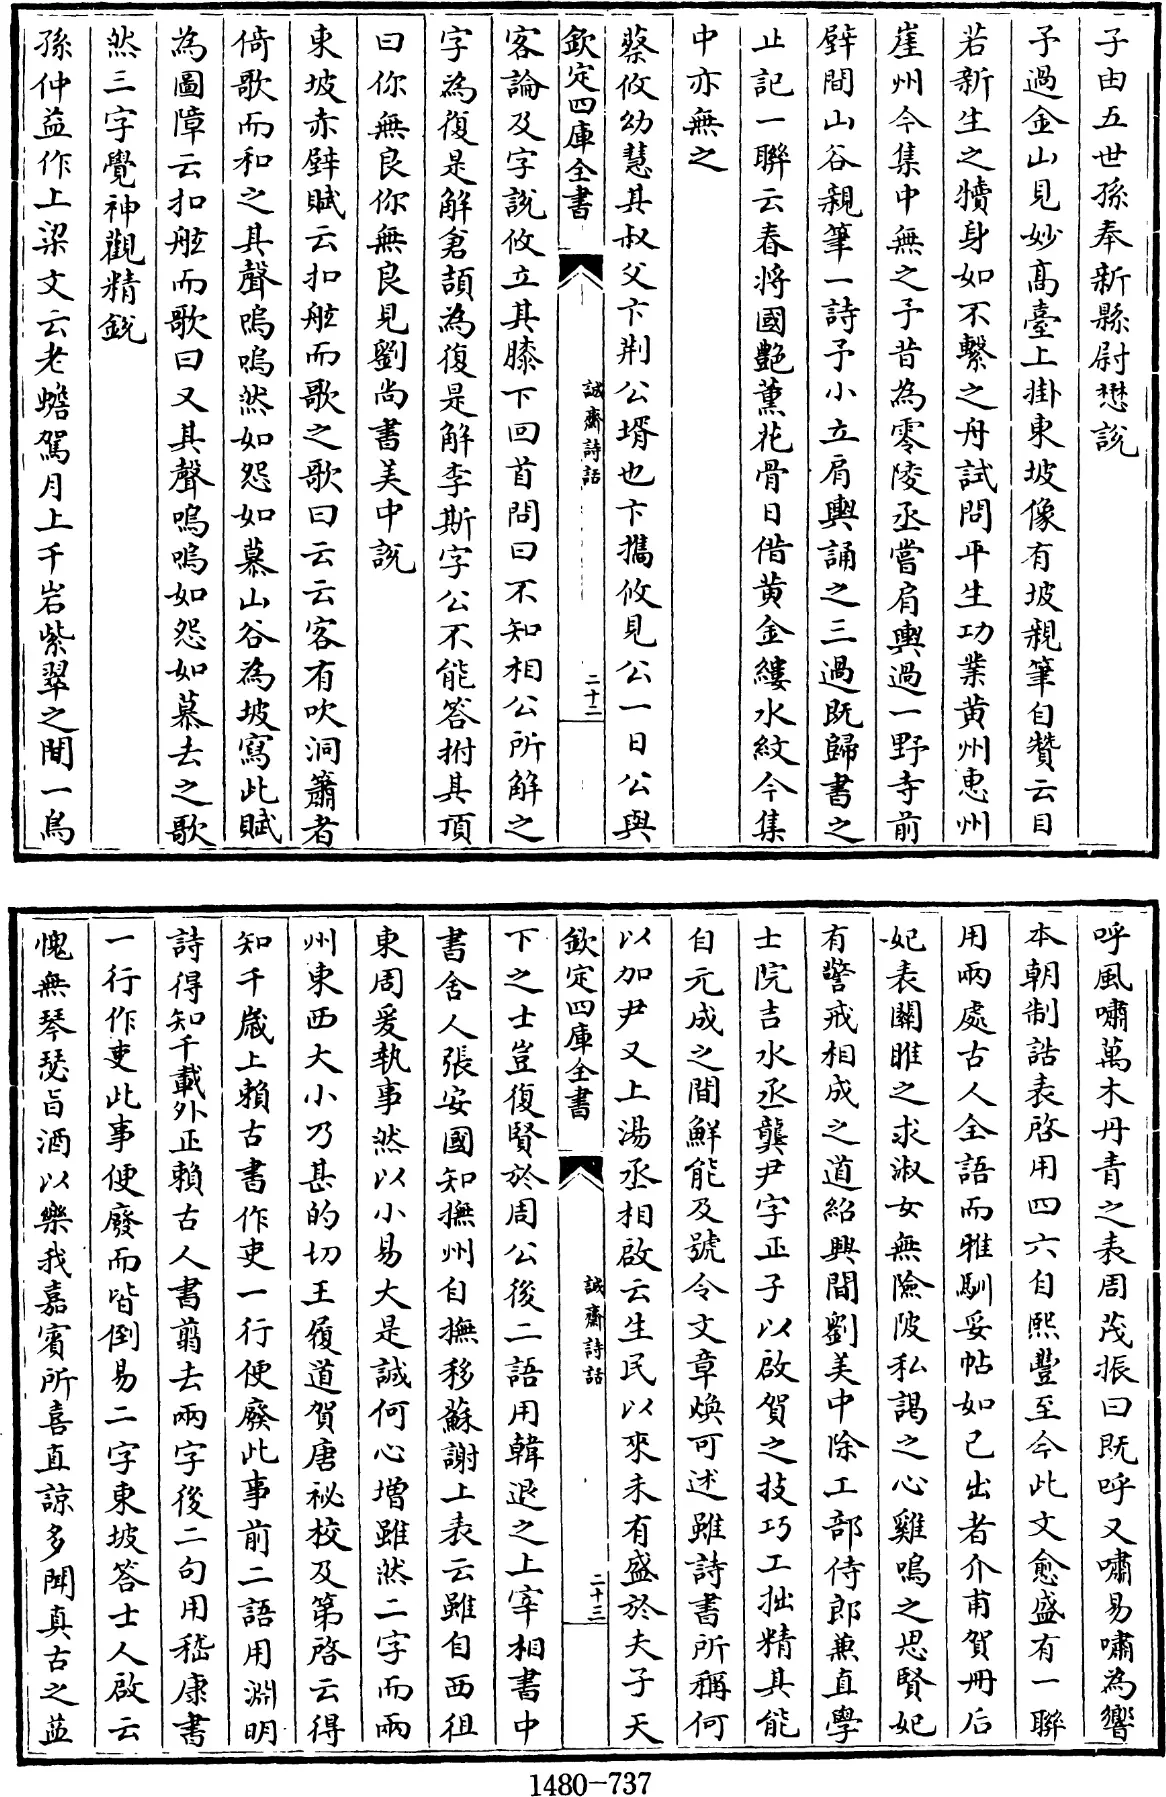 子由五世孫奉新縣尉懋說
予過金山見妙高臺上掛東坡像有坡親筆自贊云目
若新生之犢身如不繫之舟試問平生功業黄州惠州
崖州今集中無之予昔為零陵丞嘗肩輿過一野寺前
壁間山谷親筆一詩予小立肩輿誦之三過既歸書之
止記一聯云春將國艷薰花骨日借黄金縷水紋今集
中亦無之
蔡攸幼慧其叔父卞荆公壻也卞攜攸見公一日公與
欽定四庫全書
誠齋詩話
二十二
客論及字說攸立其膝下回首問曰不知相公所解之
字為復是解倉頡為復是解李斯字公不能答拊其頂
曰你無良你無良見劉尚書美中說
東坡赤壁賦云扣舷而歌之歌曰云云客有吹洞簫者
倚歌而和之其聲嗚嗚然如怨如慕山谷為坡寫此賦
為圖障云扣舷而歌曰又其聲嗚嗚如怨如慕去之歌
然三字覺神觀精銳
孫仲益作上梁文云老蟾駕月上千岩紫翠之間一鳥
呼風嘯萬木丹青之表周茂振曰既呼又嘯易嘯為響
本朝制誥表啓用四六自熙豐至今此文愈盛有一聯
用兩處古人全語而雅馴妥帖如己出者介甫賀册后
妃表關雎之求淑女無險陂私謁之心雞鳴之思賢妃
有警戒相成之道紹興間劉美中除工部侍郎兼直學
士院吉水丞龔尹字正子以啟賀之技巧工拙精其能
自元成之間鮮能及號令文章煥可述雖詩書所稱何
以加尹又上湯丞相啟云生民以來未有盛於夫子天
欽定四庫全書
誠齋詩話
二十三
下之士豈復賢於周公後二語用韓退之上宰相書中
書舍人張安國知撫州自撫移蘇謝上表云雖自西徂
東周爰執事然以小易大是誠何心増雖然二字而兩
州東西大小乃甚的切王履道賀唐祕校及第啓云得
知千歲上賴古書作吏一行便廢此事前二語用淵明
詩得知千載外正賴古人書翦去兩字後二句用嵇康書
一行作吏此事便廢而皆倒易二字東坡答士人啟云
愧無琴瑟旨酒以樂我嘉賓所喜直諒多聞真古之益
1480-737